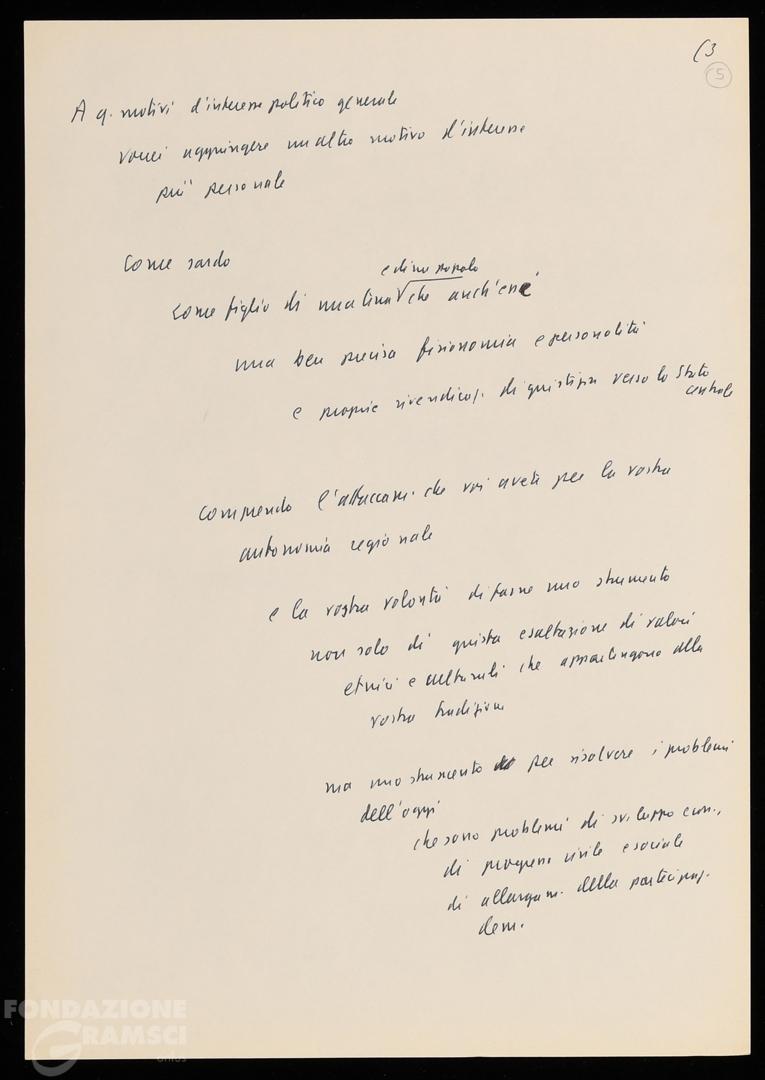 (3
5
A q. motivi d'interesse politico generale
vorrei aggiungere un altro motivo d'interesse
più personale
Come sardo
e di un popolo
come figlio di una terra che anch'essa
una ben precisa fisionomia e personalità
e proprie rivendicaz. di giustizia verso lo Stato
centrale
comprendo l'attaccam. che voi avete per la vostra
autonomia regionale
e la vostra volontà di farne uno strumento
non solo di giusta esaltazione di valori
etnici e culturali che appartengono alla
vostra tradizione
ma uno strumento per risolvere i problemi
dell'oggi
che sono problemi di sviluppo econ.,
di progresso civile e sociale
di allargam. della partecipaz.
dem.
FONDAZIONE
GRAMSCI
onlus